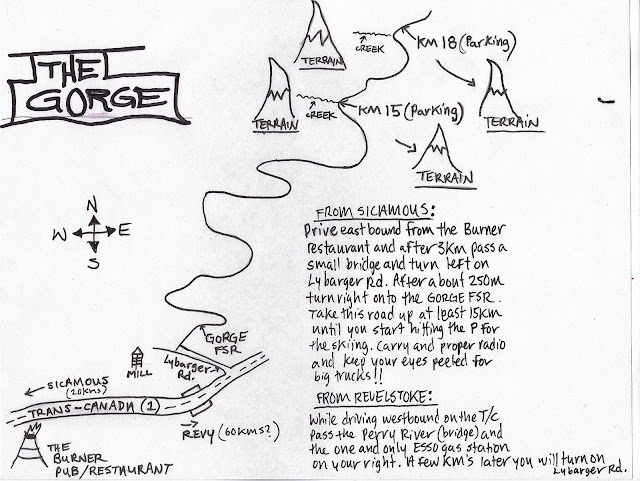 THE
GORGE
N
W E
S
TERRAIN
CREEK
KM 18 (Parking)
TERRAIN
CREEK
KM 15 (Parking)
TERRAIN
TERRAIN
FROM SICAMOUS:
Drive east bound from the Burner
restaurant and after 3km pass a
small bridge and turn left on
Lybarger Rd. After about 250m
turn right onto the GORGE FSR.
Take this road up at least 15km
until you start hitting the P for
the skiing. Carry and proper radio
and keep your eyes peeled for
big trucks!!
FROM REVELSTOKE:
While driving westbound on the T/C
pass the Perry River (bridge) and
the one and only ESSO gas station
on your right. A few KM's later you will turn on
Lybarger Rd.
GORGE
FSR
Lybarger
Rd.
MILL
SICAMOUS
(20kms)
TRANS-CANADA (1)
REVY (60KMS?)
THE
BURNER
PUB/RESTAURANT